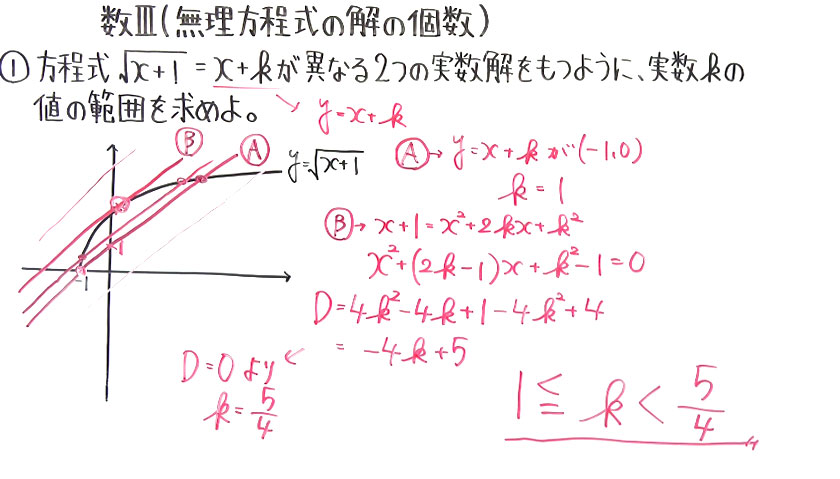 数Ⅲ(無理方程式の解の個数)
① 方程式 √x+1 = x+k が異なる2つの実数解をもつように、実数kの
値の範囲を求めよ。
y=x+k
Ⓑ Ⓐ
y=√x+1
1
-1
Ⓐ→ y=x+k が(-1,0)
k=1
Ⓑ→ x+1=x²+2kx+k²
x²+(2k-1)x+k²-1=0
D=4k²-4k+1-4k²+4
= -4k+5
D=0より
k=5/4
1≦k<5/4